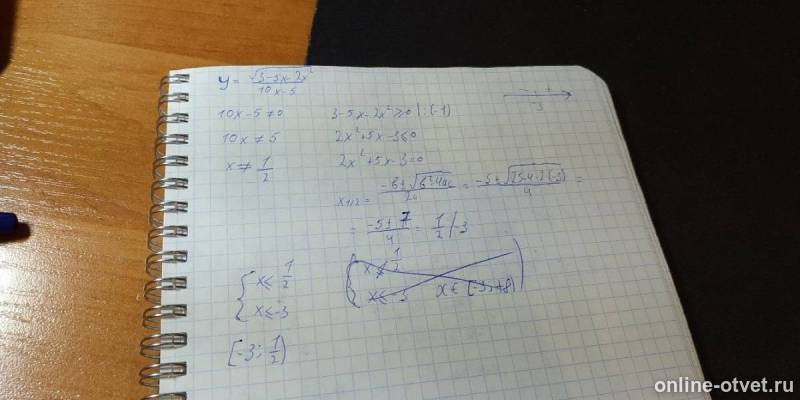 y = √(3-5x-2x²) / (10x-5)
10x-5≠0
10x≠5
x≠ 1/2
3-5x-2x²≥0 | :(-1)
2x²+5x-3≤0
2x²+5x-3=0
x1/2 = (-b±√(b²-4ac)) / 2a = (-5±√(25-4·2·(-3))) / 4 =
= (-5±7) / 4 = 1/2 / -3
-3
{ x≤ 1/2
x≤-3
[-3; 1/2)
x≤-3 x∈[-3;+8)
online-otvet.ru